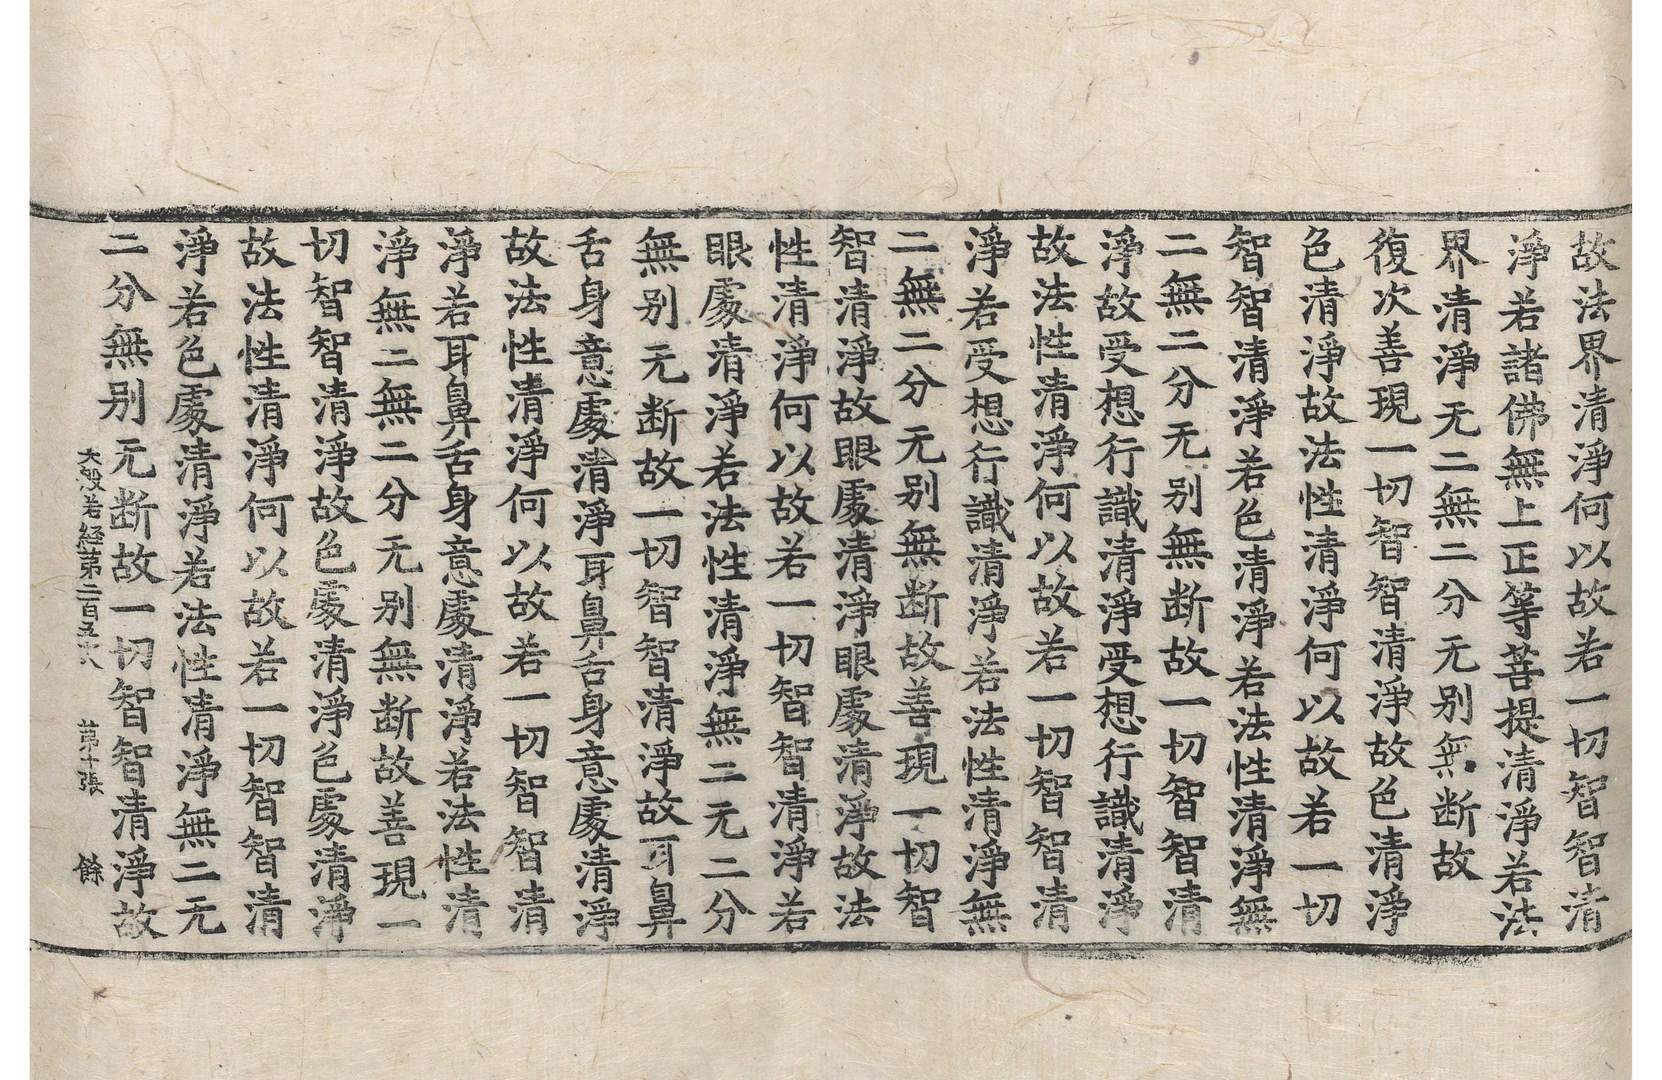 故法界清淨何以故若一切智智清
淨若諸佛無上正等菩提清淨若法
界清淨无二無二分无别無断故
復次善現一切智智清淨故色清淨
色清淨故法性清淨何以故若一切
智智清淨若色清淨若法性清淨無
二無二分无别無断故一切智智清
淨故受想行識清淨受想行識清淨
故法性清淨何以故若一切智智清
淨若受想行識清淨若法性清淨無
二無二分无别無断故善現一切智
智清淨故眼處清淨眼處清淨故法
性清淨何以故若一切智智清淨若
眼處清淨若法性清淨無二无二分
無别无断故一切智智清淨故耳鼻
舌身意處清淨耳鼻舌身意處清淨
故法性清淨何以故若一切智智清
淨若耳鼻舌身意處清淨若法性清
淨無二無二分无别無断故善現一
切智智清淨故色處清淨色處清淨
故法性清淨何以故若一切智智清
淨若色處清淨若法性清淨無二无
二分無别无断故一切智智清淨故
大般若経第二百五十六 第十張 餘